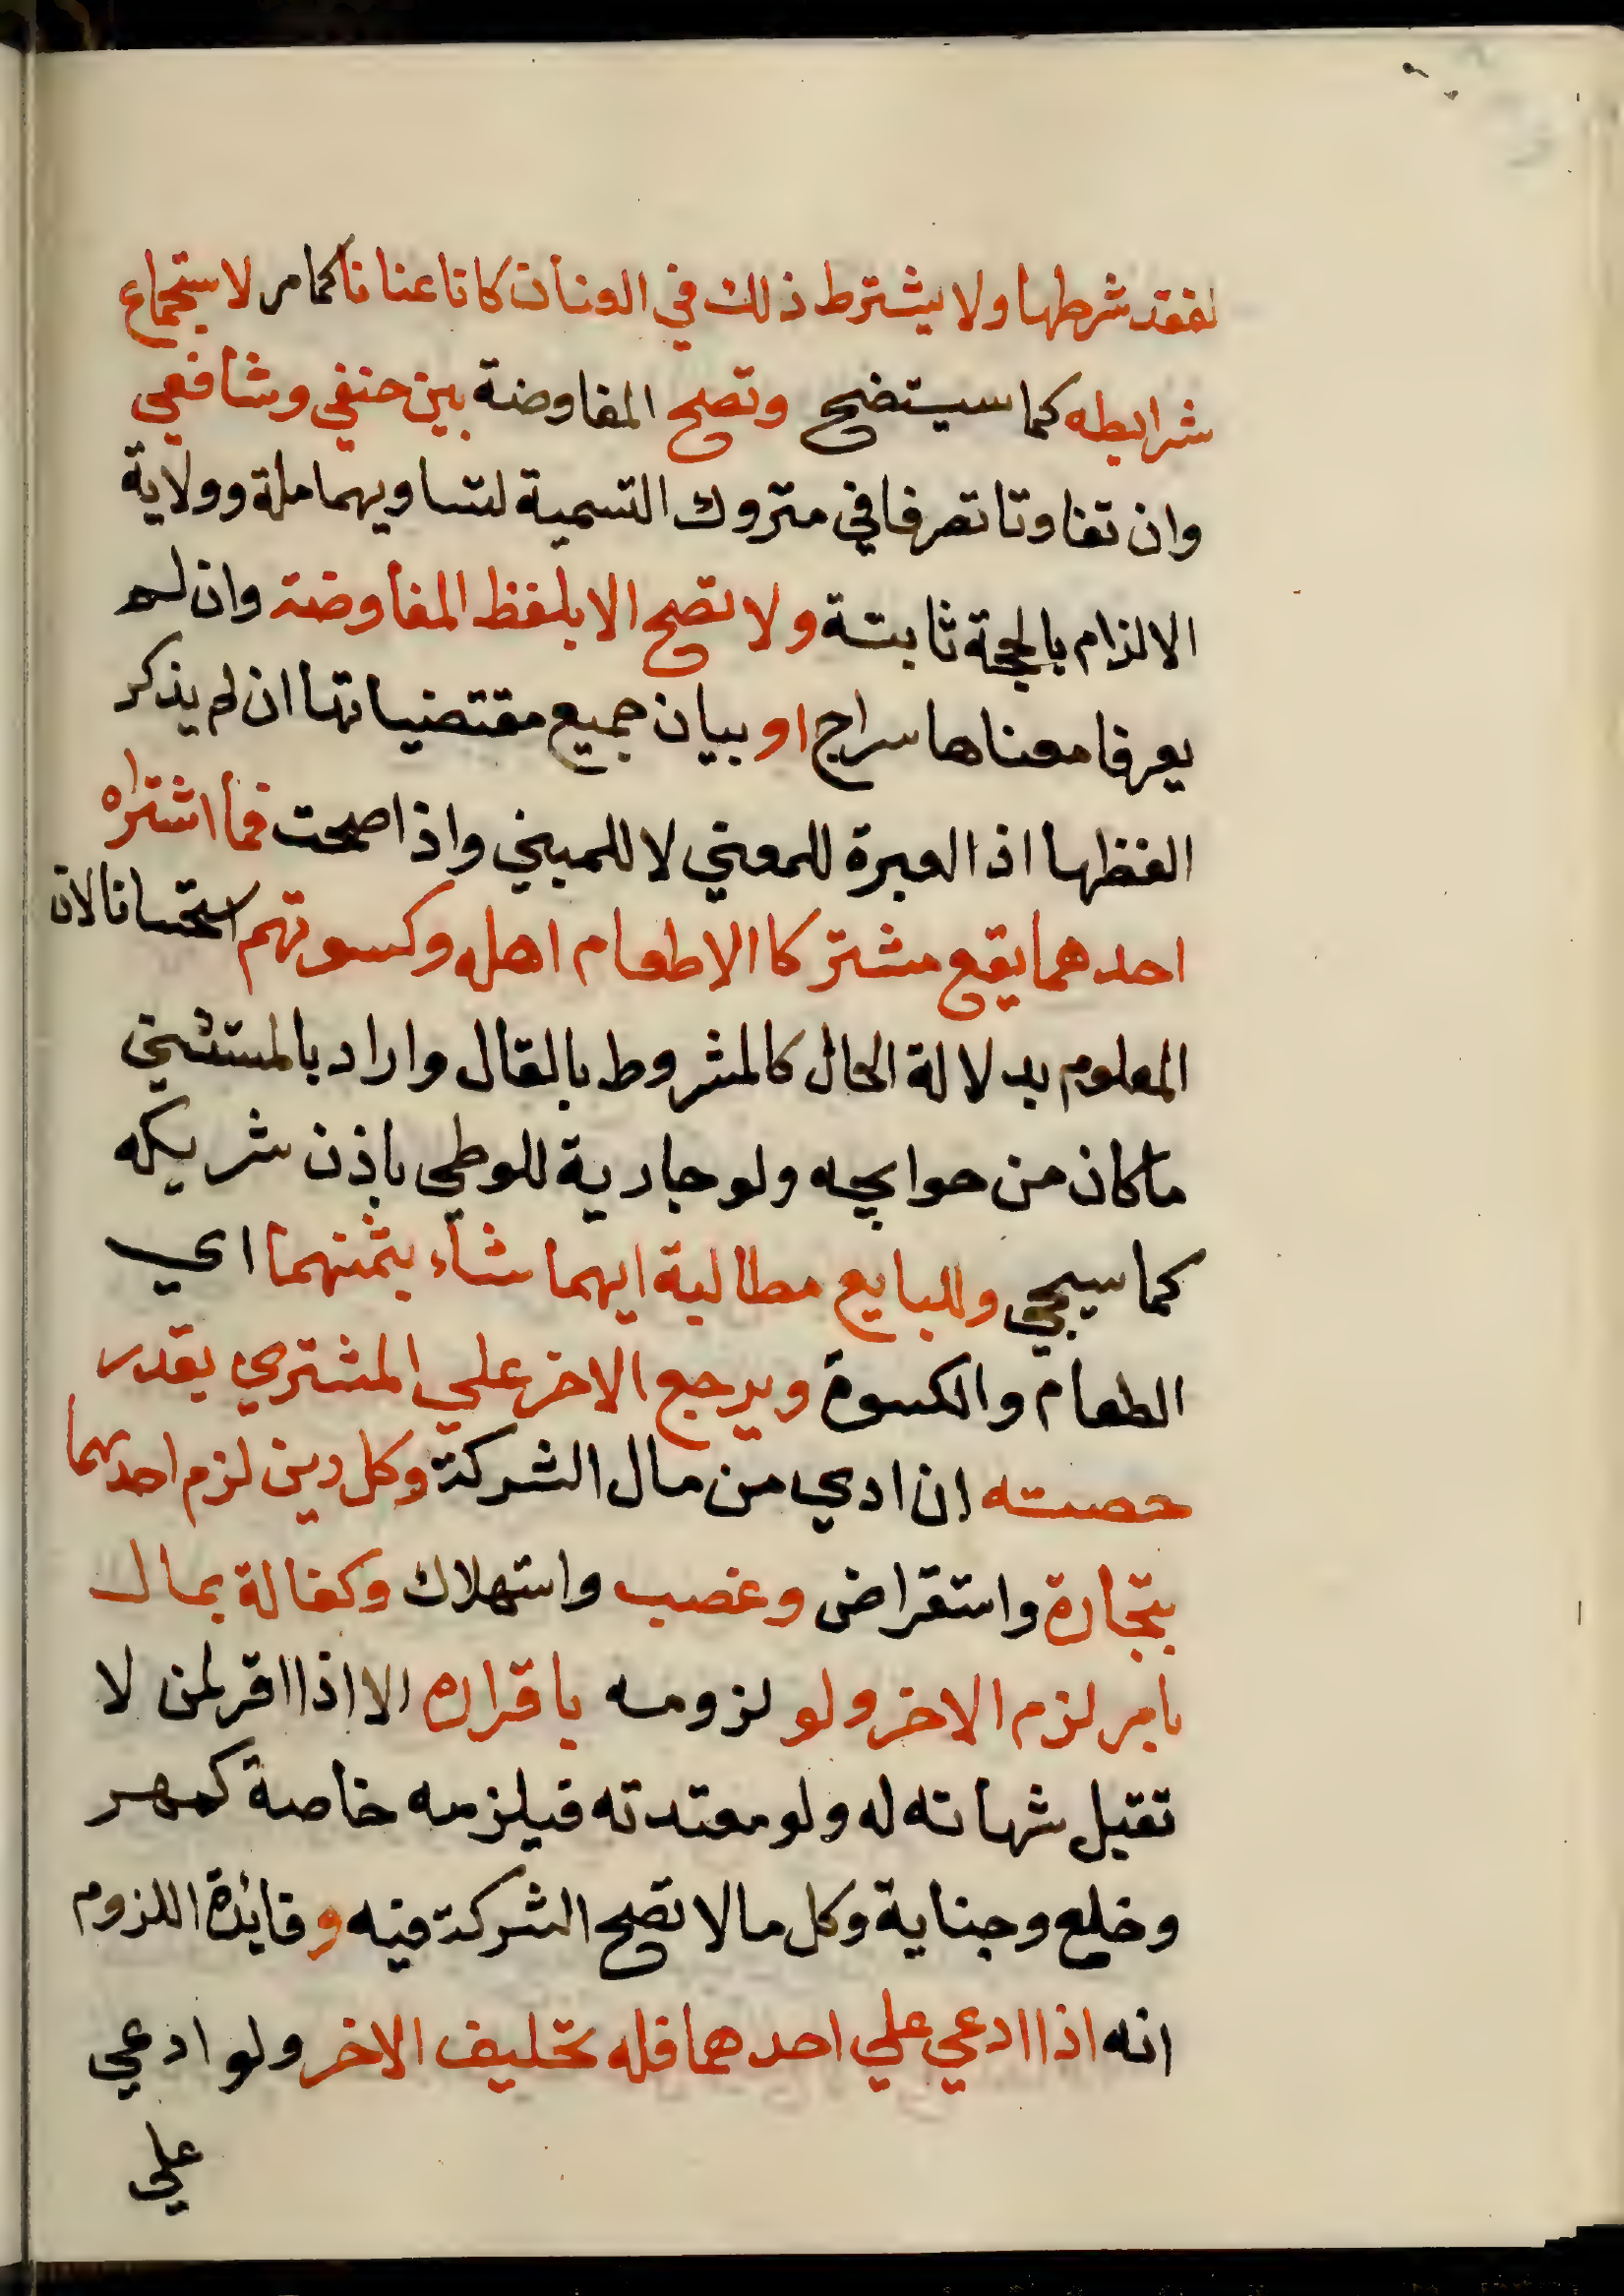 لفقد شرطها ولا يشترط ذلك في العنان كانا عنانا كما مر لاستجماع
شرايطه كما سيتضح وتصح المفاوضة بين حنفي وشافعي
وان تفاوتا تصرفا في متروك التسمية لتساويهما ملة وولاية
الالزام بالحجة ثابتة ولا تصح الا بلفظ المفاوضة وان لم
يعرفا معناها سراج او بيان جميع مقتضياتها ان لم يذكر
الفظها اذ العبرة للمعني لا للمبني واذا صحت فما اشتراه
احدهما يقع مشتركا الا طعام اهله وكسوتهم استحسانا لان
المعلوم بدلالة الحال كالمشروط بالقال واراد بالمستثني
ما كان من حوايجه ولو جارية للوطي باذن شريكه
كما سيجي وللبايع مطالبة ايهما شاء بثمنهما اي
الطعام والكسوة ويرجع الاخر علي المشتري بقدر
حصته ان ادي من مال الشركة وكل دين لزم احدهما
بتجارة واستقراض وغصب واستهلاك وكفالة بمال
بامر لزم الاخر ولو لزومه باقراره الا اذا اقر لمن لا
تقبل شهاته له ولو معتدته فيلزمه خاصة كمهر
وخلع وجناية وكل ما لا تصح الشركة فيه وفايدة اللزوم
انه اذا ادعي علي احدهما فله تحليف الاخر ولو ادعي
علي